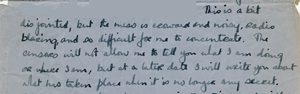 This is a bit
disjointed, but the mess is crowded and noisy, radio
blaring and so difficult for me to concentrate. The
censors will not allow me to tell you what I am doing
or where I am, but at a later date I will write you about
what has taken place when it is no longer any secret.